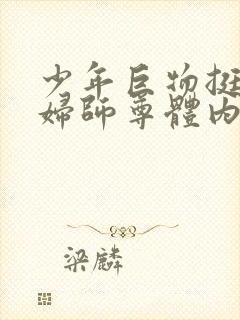 少年巨物挺
婦師尊體內
梁麟